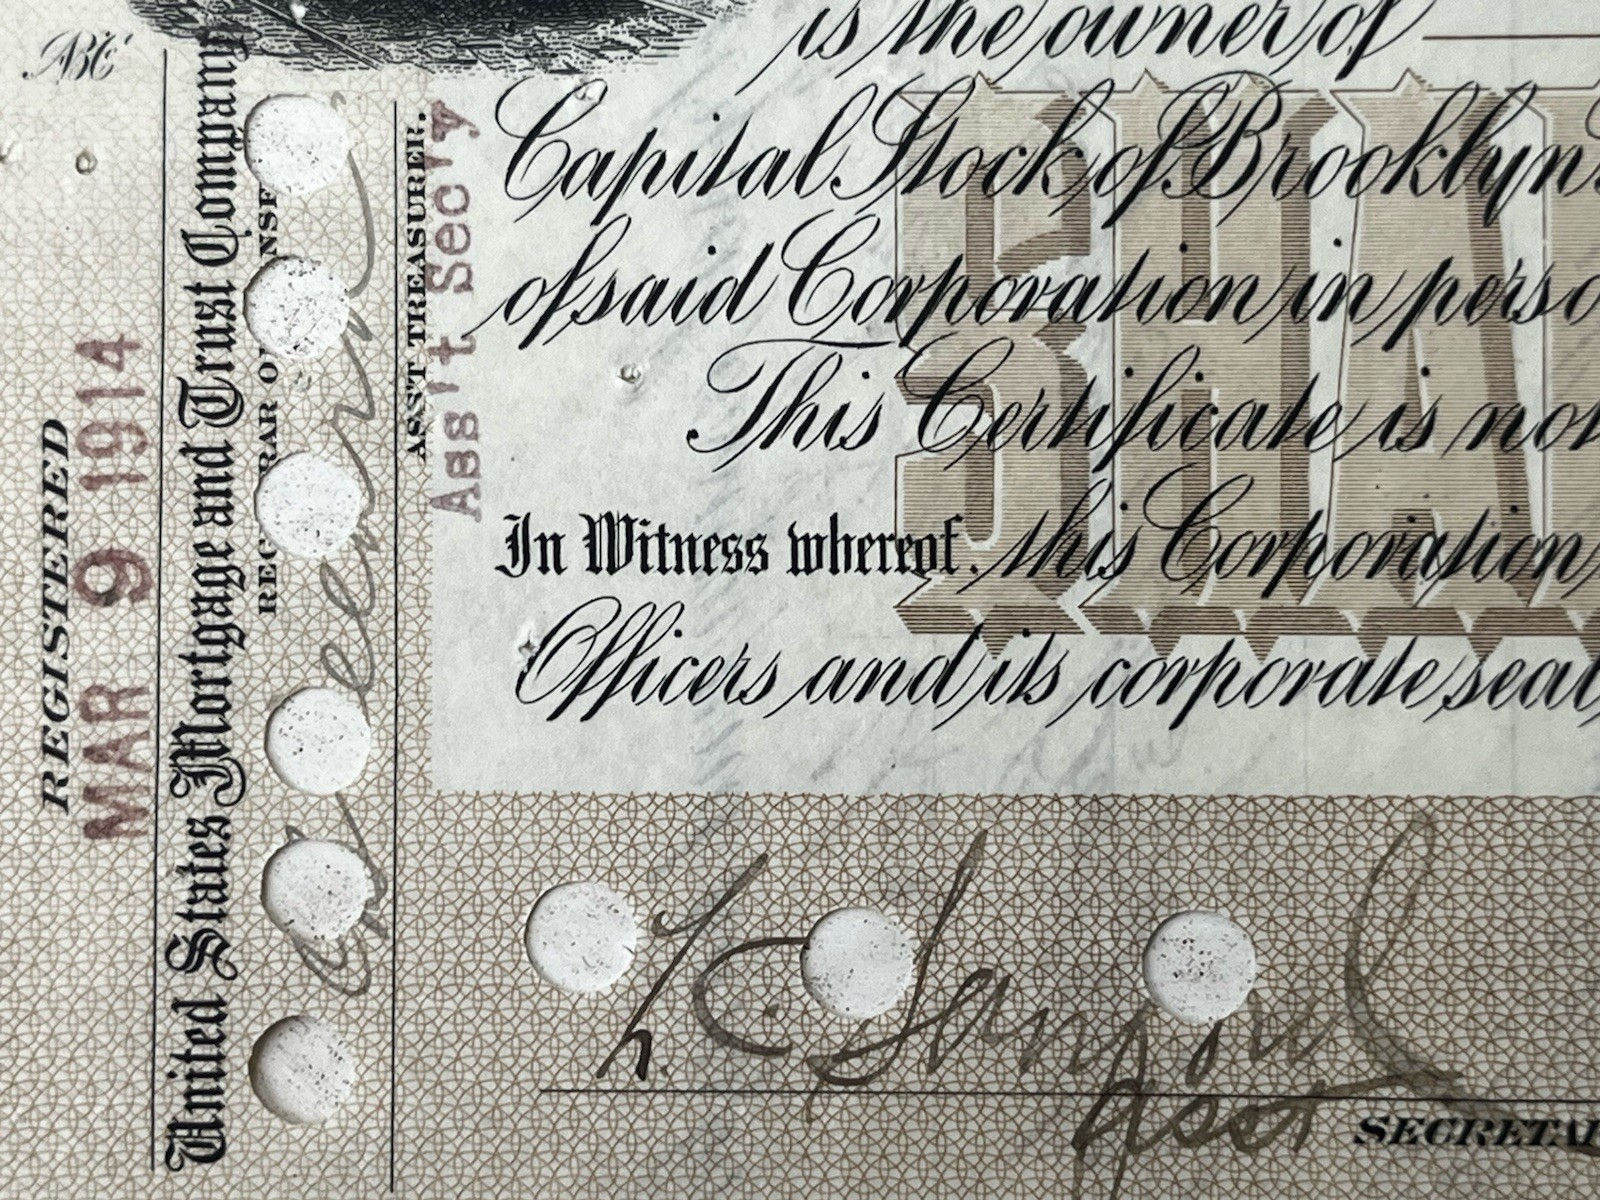 ABC
REGISTERED
MAR 9 1914
United States Mortgage and Trust Company
REG RAR O NSF
ASS'T TREASURER.
Ass't Sec'y
is the owner of
Capital Stock of Brooklyn
of said Corporation in perso
This Certificate is not
In Witness whereof, this Corporation
Officers and its corporate seal,
SHA
Asst
SECRETA